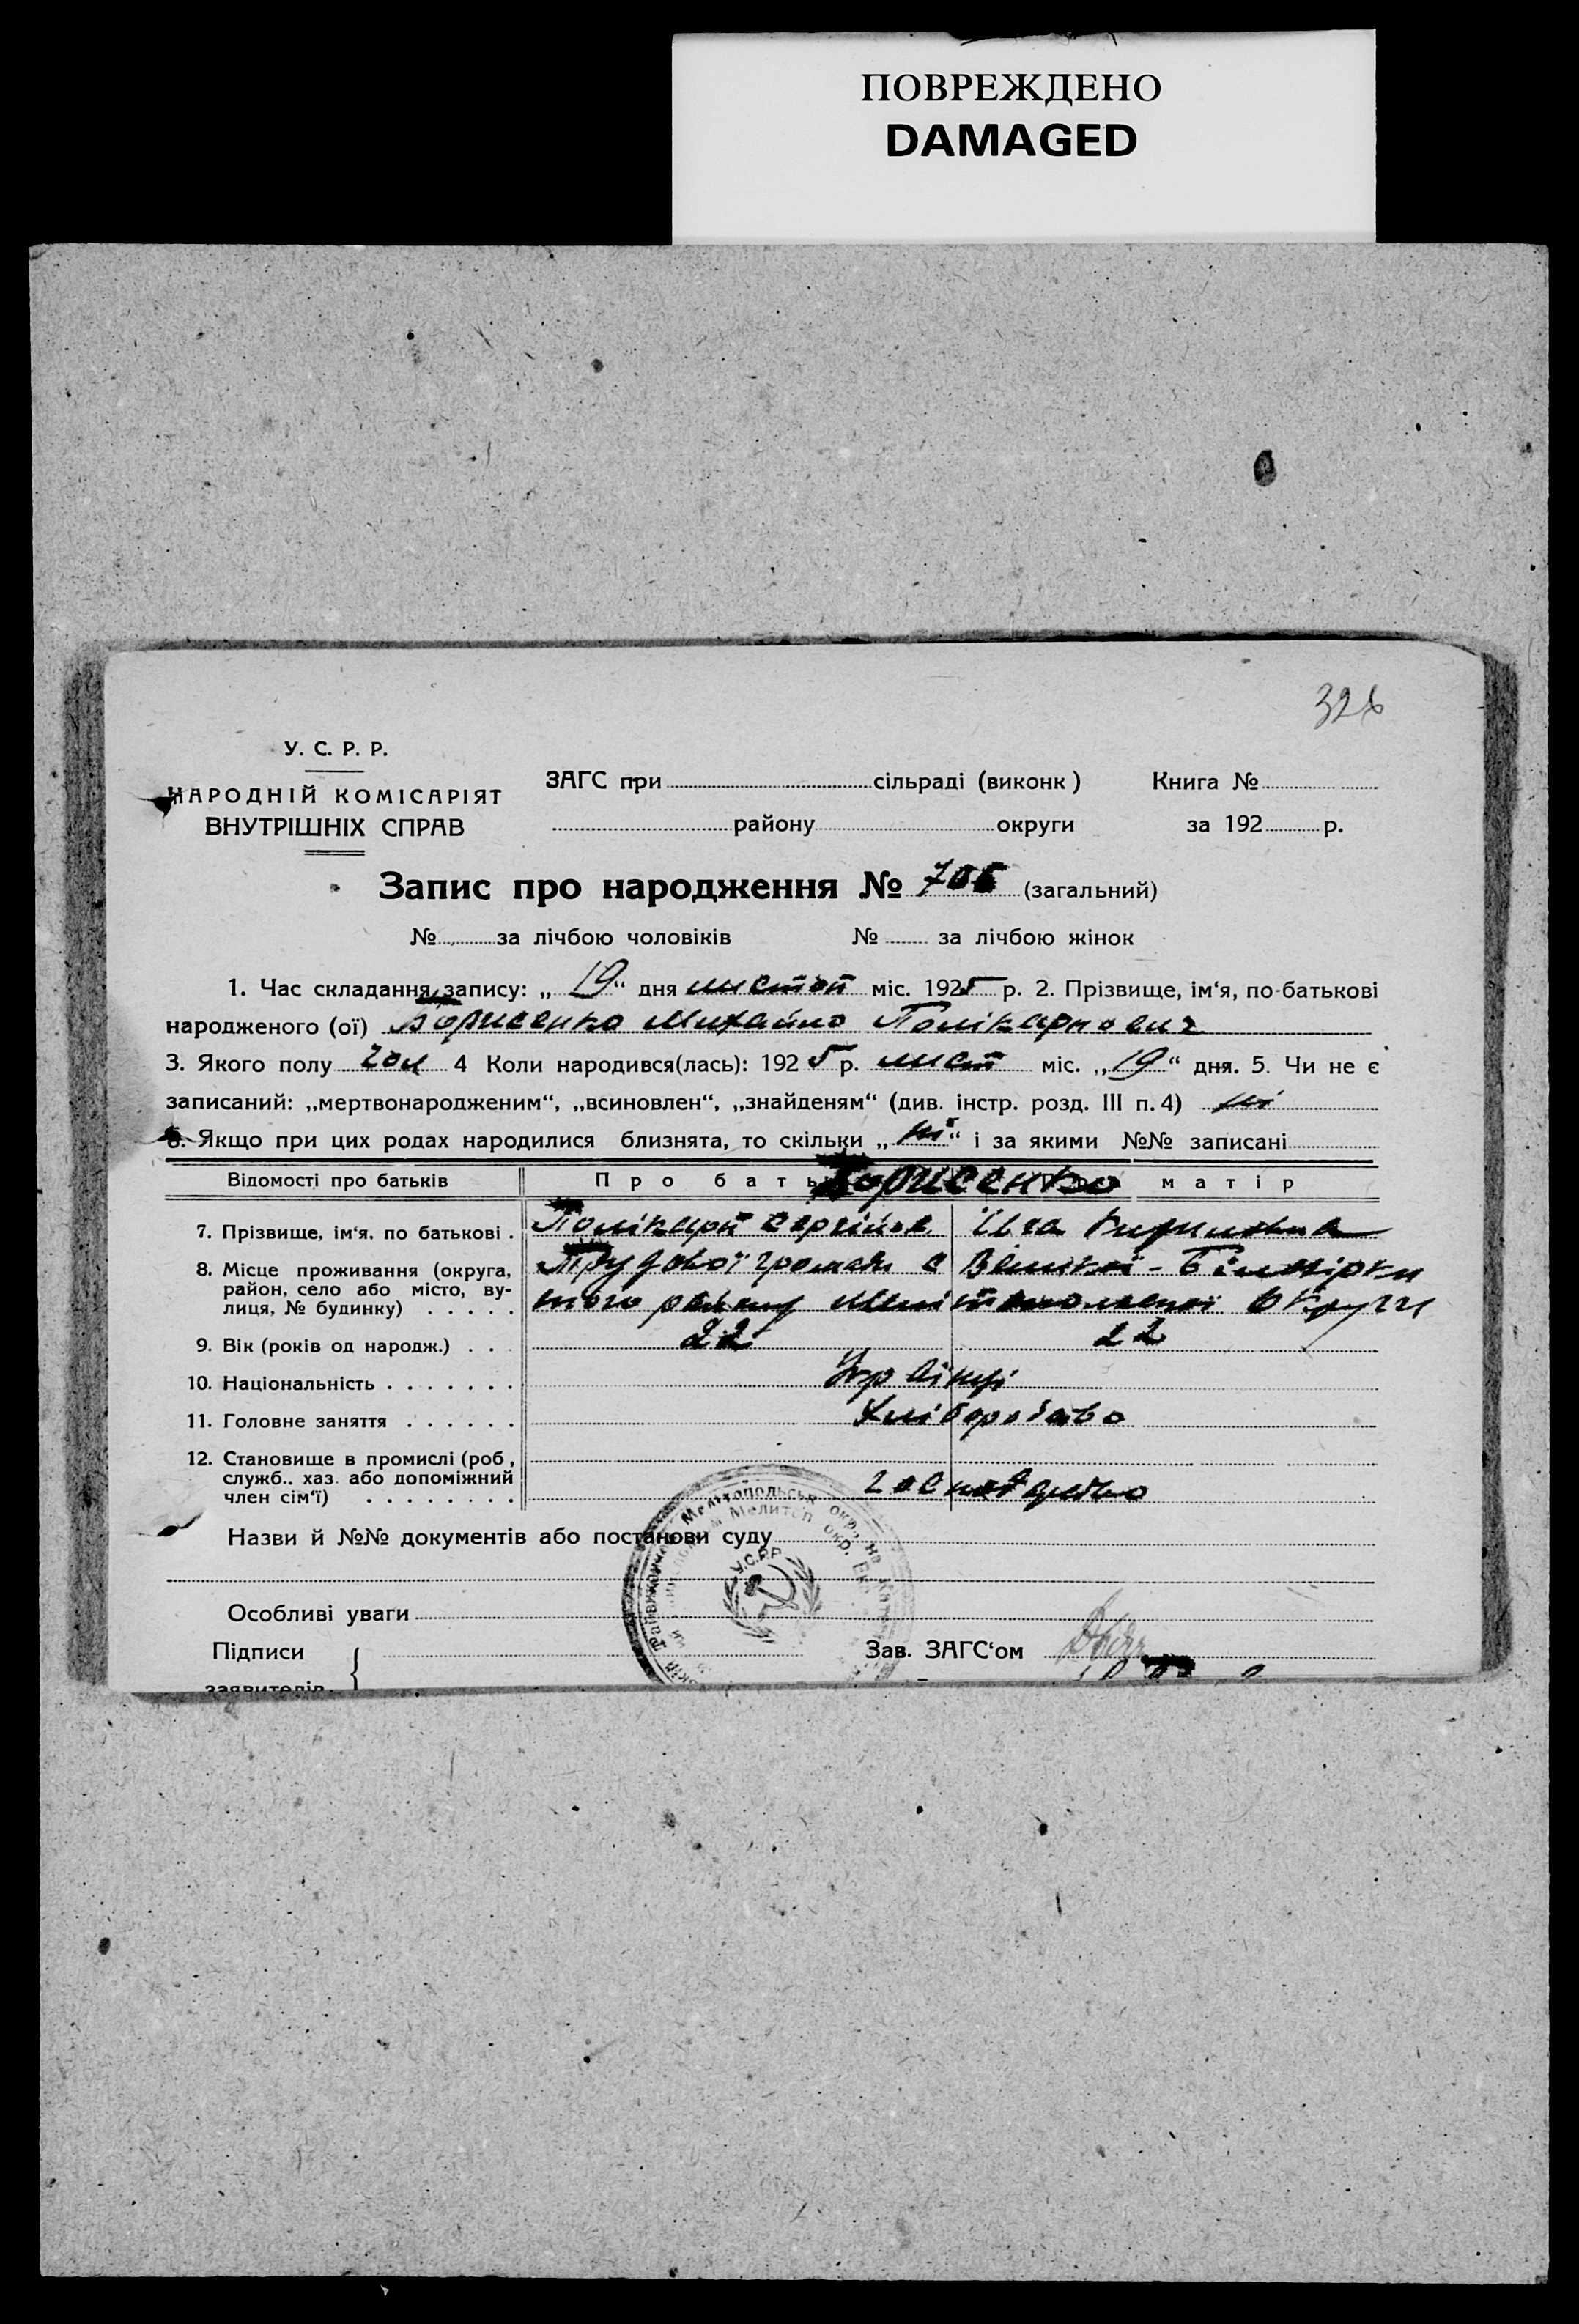 ПОВРЕЖДЕНО
DAMAGED
326
У. С. Р. Р.
НАРОДНІЙ КОМІСАРІЯТ
ВНУТРІШНІХ СПРАВ
ЗАГС при сільраді (виконк)
Книга №
району округи
за 192 р.
Запис про народження № 706 (загальний)
№ за лічбою чоловіків № за лічбою жінок
1. Час складання запису: „19“ дня листоп міс. 1925 р. 2. Прізвище, ім‘я, по-батькові
народженого (ої) Борисенко Михайло Полікарпович
3. Якого полу чол 4 Коли народився(лась): 1925 р. лист міс. „19“ дня. 5. Чи не є
записаний: „мертвонародженим“, „всиновлен“, „знайденям“ (див. інстр. розд. III п. 4) ні
6. Якщо при цих родах народилися близнята, то скільки „ні“ і за якими №№ записані
Відомості про батьків Про бать Борисенко матір
7. Прізвище, ім‘я, по батькові . Полікарп Сергійов Ївга Кирилівна
8. Місце проживання (округа,
район, село або місто, ву-
лиця, № будинку) . . . . .
Трудової громади с Великої-Білозірки
того району Мелітопольської Округи
9. Вік (років од народж.) . . . 22 22
10. Національність . . . . . . . Українці
11. Головне заняття . . . . . . Хліборобство
12. Становище в промислі (роб,
служб.. хаз. або допоміжний
член сім‘ї) . . . . . . . .
Назви й №№ документів або постанови суду
У.С.Р.Р
Особливі уваги
Підписи
заявителів
Зав. ЗАГС‘ом